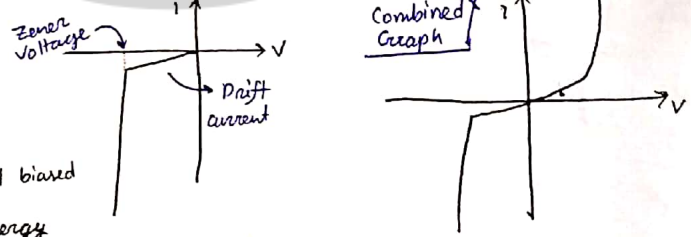 I
Zener
voltage
V
Drift
current
l biased
ergy
Combined
Graph
I
V